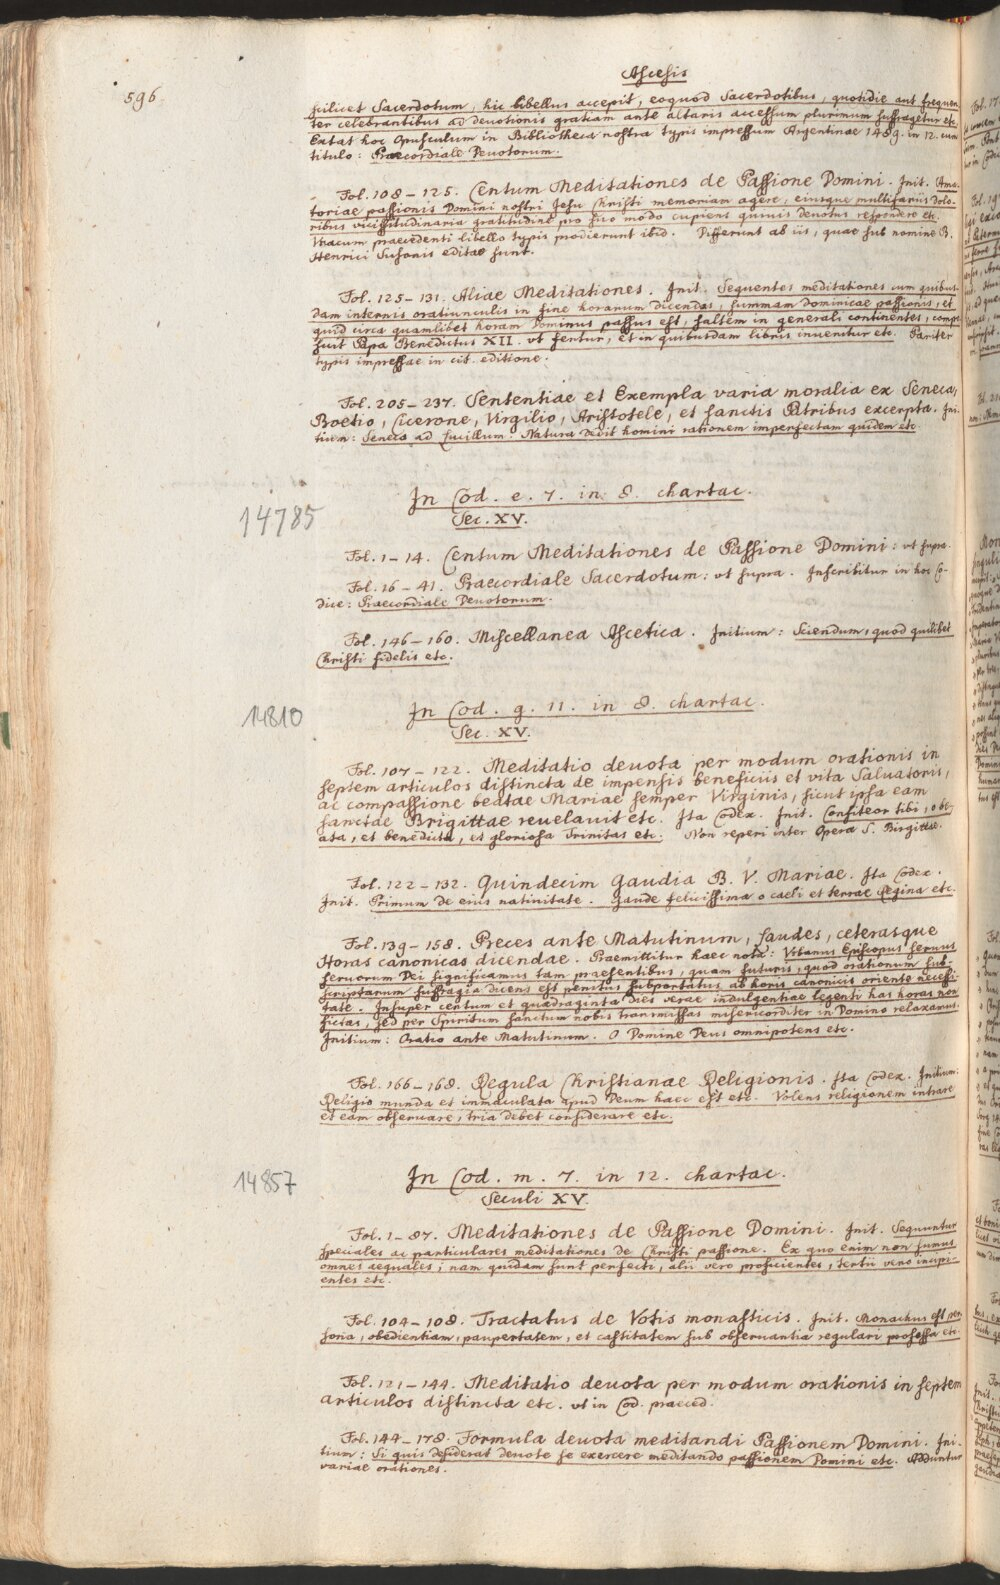 Ascesis
596
scilicet Sacerdotum, hic libellus accepit, eoquod Sacerdotibus, quotidie aut frequen-
ter celebrantibus ad deuotionis gratiam ante altaris accessum plurimum suffragetur etc.
Extat hoc Opusculum in Bibliotheca nostra typis impressum Argentinae 1489. in 12. cum
titulo: Praecordiale Deuotorum.
Fol. 108 – 125. Centum Meditationes de Passione Domini. Init. Ama-
toriae passionis Domini nostri Jesu Christi memoriam agere, eiusque multifariis dolo-
ribus vicissitudinaria gratitudine pro suo modo cupiens quiuis deuotus respondere etc.
Vnacum praecedenti libello typis prodierunt ibid. Differunt ab iis, quae sub nomine B.
Henrici Susonis editae sunt.
Fol. 125 – 131. Aliae Meditationes. Init. Sequentes meditationes cum quibus-
dam internis oratiunculis in fine horarum dicendas, summam dominicae passionis, et
quid circa quamlibet horam Dominus passus est, saltem in generali continentes, compo-
suit Papa Benedictus XII. vt fertur, et in quibusdam libris inuenitur etc. Pariter
typis impressae in cit. editione.
Fol. 205 – 237. Sententiae et Exempla varia moralia ex Seneca,
Boetio, Cicerone, Virgilio, Aristotele, et sanctis Patribus excerpta. Ini-
tium: Seneca ad Lucillum. Natura dedit homini rationem imperfectam quidem etc
In Cod. e. 7. in 8. chartac.
14785
Sec. XV.
Fol. 1 – 14. Centum Meditationes de Passione Domini: vt supra.
Fol. 16 – 41. Praecordiale Sacerdotum: vt supra. Inscribitur in hoc Co-
dice: Praecordiale Deuotorum.
Fol. 146 – 160. Miscellanea Ascetica. Initium: Sciendum, quod quilibet
Christi fidelis etc.
In Cod. g. 11. in 8. chartac.
14810
Sec. XV.
Fol. 107 – 122. Meditatio deuota per modum orationis in
septem articulos distincta de impensis beneficiis et vita Saluatoris,
ac compassione beatae Mariae semper Virginis, sicut ipsa eam
sanctae Brigittae reuelauit etc. Ita Codex. Init. Confiteor tibi, o be-
ata, et benedicta, et gloriosa Trinitas etc. Non reperi inter Opera S. Birgittae.
Fol. 122 – 132. Quindecim Gaudia B. V. Mariae. Ita Codex.
Init. Primum de eius natiuitate. Gaude felicissima o caeli et terrae Regina etc.
Fol. 139 – 158. Preces ante Matutinum, Laudes, ceterasque
Horas canonicas dicendae. Praemittitur haec nota: Vrbanus Episcopus seruus
seruorum Dei significamus tam praesentibus, quam futuris, quod orationum sub-
scriptarum suffragia dicens est penitus subportatus ab horis canonicis oriente necessi-
tate. Insuper centum et quadraginta dies verae indulgentiae legenti has horas non
fictas, sed per Spiritum sanctum nobis transmissas misericorditer in Domino relaxamus.
Initium: Oratio ante Matutinum. O Domine Deus omnipotens etc.
Fol. 166 – 168. Regula Christianae Religionis. Ita Codex. Initium:
Religio munda et immaculata apud Deum haec est etc. Volens religionem intrare
et eam obseruare, tria debet considerare etc.
In Cod. m. 7. in 12. chartac.
14857
Seculi XV.
Fol. 1 – 87. Meditationes de Passione Domini. Init. Sequuntur
speciales ac particulares meditationes de Christi passione. Ex quo enim non sumus
omnes aequales; nam quidam sunt perfecti, alii vero proficientes, tertii vero incipi-
entes etc.
Fol. 104 – 108. Tractatus de Votis monasticis. Init. Monachus est per-
sona, obedientiam, paupertatem, et castitatem sub obseruantia regulari professa etc.
Fol. 121 – 144. Meditatio deuota per modum orationis in septem
articulos distincta etc. vt in Cod. praeced.
Fol. 144 – 178. Formula deuota meditandi Passionem Domini. Ini-
tium: Si quis desiderat deuote se exercere meditando passionem Domini etc. Adduntur
variae orationes.